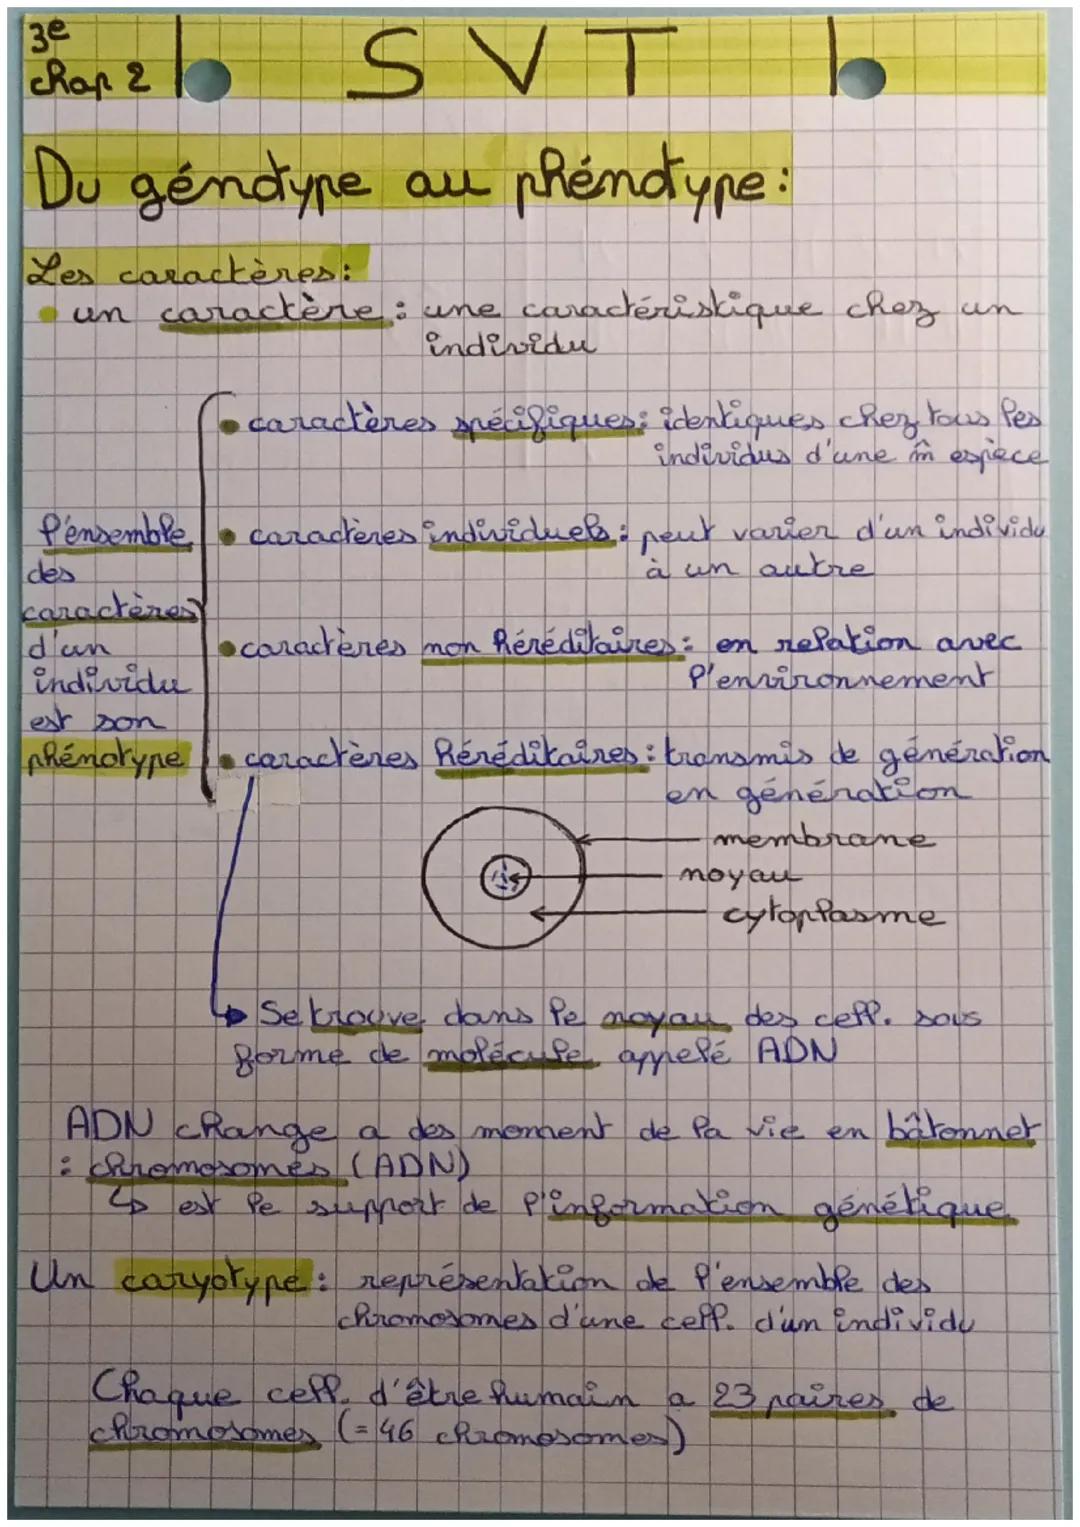 3e
chap 2
SVT
Du génotype au phénotype :
Les caractères :
• un caractère : une caractéristique chez un
individu
• caractères spécifiques : identiques chez tous les
individus d'une m̂ espèce
• caractères individuels : peut varier d'un individu
à un autre
• caractères non héréditaires : en relation avec
l'environnement
• caractères héréditaires : transmis de génération
en génération
l'ensemble
des
caractères
d'un
individu
est son
phénotype
membrane
noyau
cytoplasme
↳ Se trouve dans le noyau des cell. sous
forme de molécule appelé ADN
ADN change a des moment de la vie en bâtonnet
: chromosomes (ADN)
↳ est le support de l'information génétique
Un caryotype : représentation de l'ensemble des
chromosomes d'une cell. d'un individu
Chaque cell. d'être humain a 23 paires de
chromosomes (= 46 chromosomes)